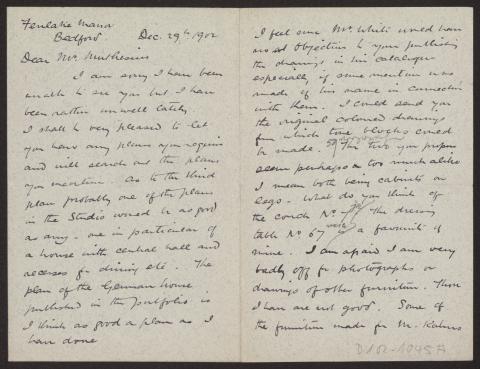 Fenlake Manor
Bedford Dec. 29th 1902
Dear Mr. Muthesius
I am sorry I have been
unable to see you but I have
been rather unwell lately.
I shall be very pleased to let
you have any plans you require
and will search out the plans
you mention. As to the third
plan probably one of the plans
in the Studio would be as good
as any one in particular of
a house with central hall and
recesses for dining etc. The
plan of the German house
published in the portfolio is
I think as good a plan as I
have done
I feel sure Mr. White would have
no objection to your publishing
the drawings in his catalogue
especially if some mention was
made of his name in connection
with them. I could send you
the original coloured drawings
from which tone blocks could
be made. The two you propose
seem perhaps too much alike
I mean both being cabinets on
legs. What do you think of
the couch No. The dressing
table No 67 a favourite of
mine. I am afraid I am very
badly off for photographs or
drawings of other furniture. Those
I have are not good. Some of
the furniture made for Mr. Kahns
D 102-1045 A